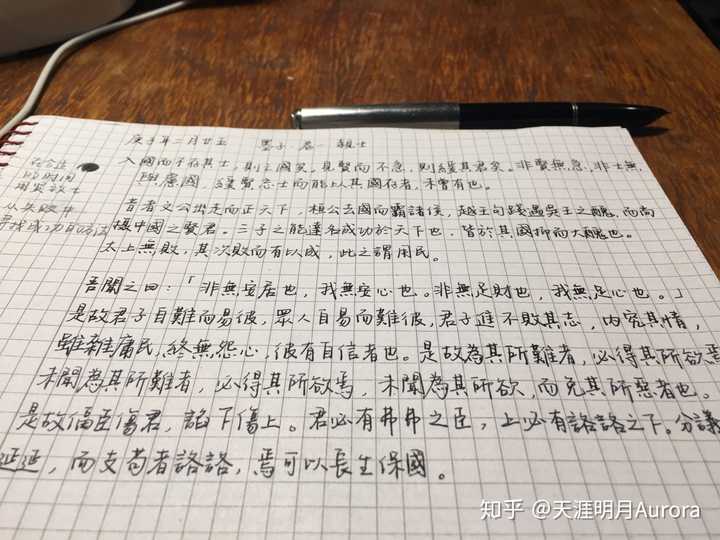 庚子年二月廿五 墨子 卷一 親士
在合适
的时间
用贤放士
从失败中
寻找成功的路径
入國而不存其士,則亡國矣。見賢而不急,則緩其君矣。非賢無急,非士無
與慮國,緩賢忘士而能上以其國存者,未曾有也。
昔者文公出走而正天下,桓公去國而霸諸侯,越王句踐遇吳王之醜,而尚
攝中國之賢君。三子之能達名成功於天下也,皆於其國抑而大醜也。
太上無敗,其次敗而有以成,此之謂用民。
吾聞之曰:「非無安居也,我無安心也。非無足財也,我無足心也。」
是故君子自難而易彼,眾人自易而難彼,君子進不敗其志,內究其情,
雖雜庸民,終無怨心,彼有自信者也。是故為其所難者,必得其所欲焉
未聞為其所難者,必得其所欲焉,未聞為其所欲,而免其所惡者也。
是故偪臣傷君,諂下傷上。君必有弗弗之臣,上必有詻詻之下。分議
延延,而支苟者詻詻,焉可以長生保國。
知乎 @天涯明月Aurora